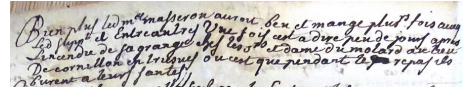 Bien plus led. mre masseron auroit beu et mangé plusrs fois avec
led suppt et Entreautres Une fois cest a dire peu de jours apres
Lincendie de sa grange ches les sr et dame du molard au lieu
De cornillon en trieves ou est que pendant le repas ils
Burent a leurs santes